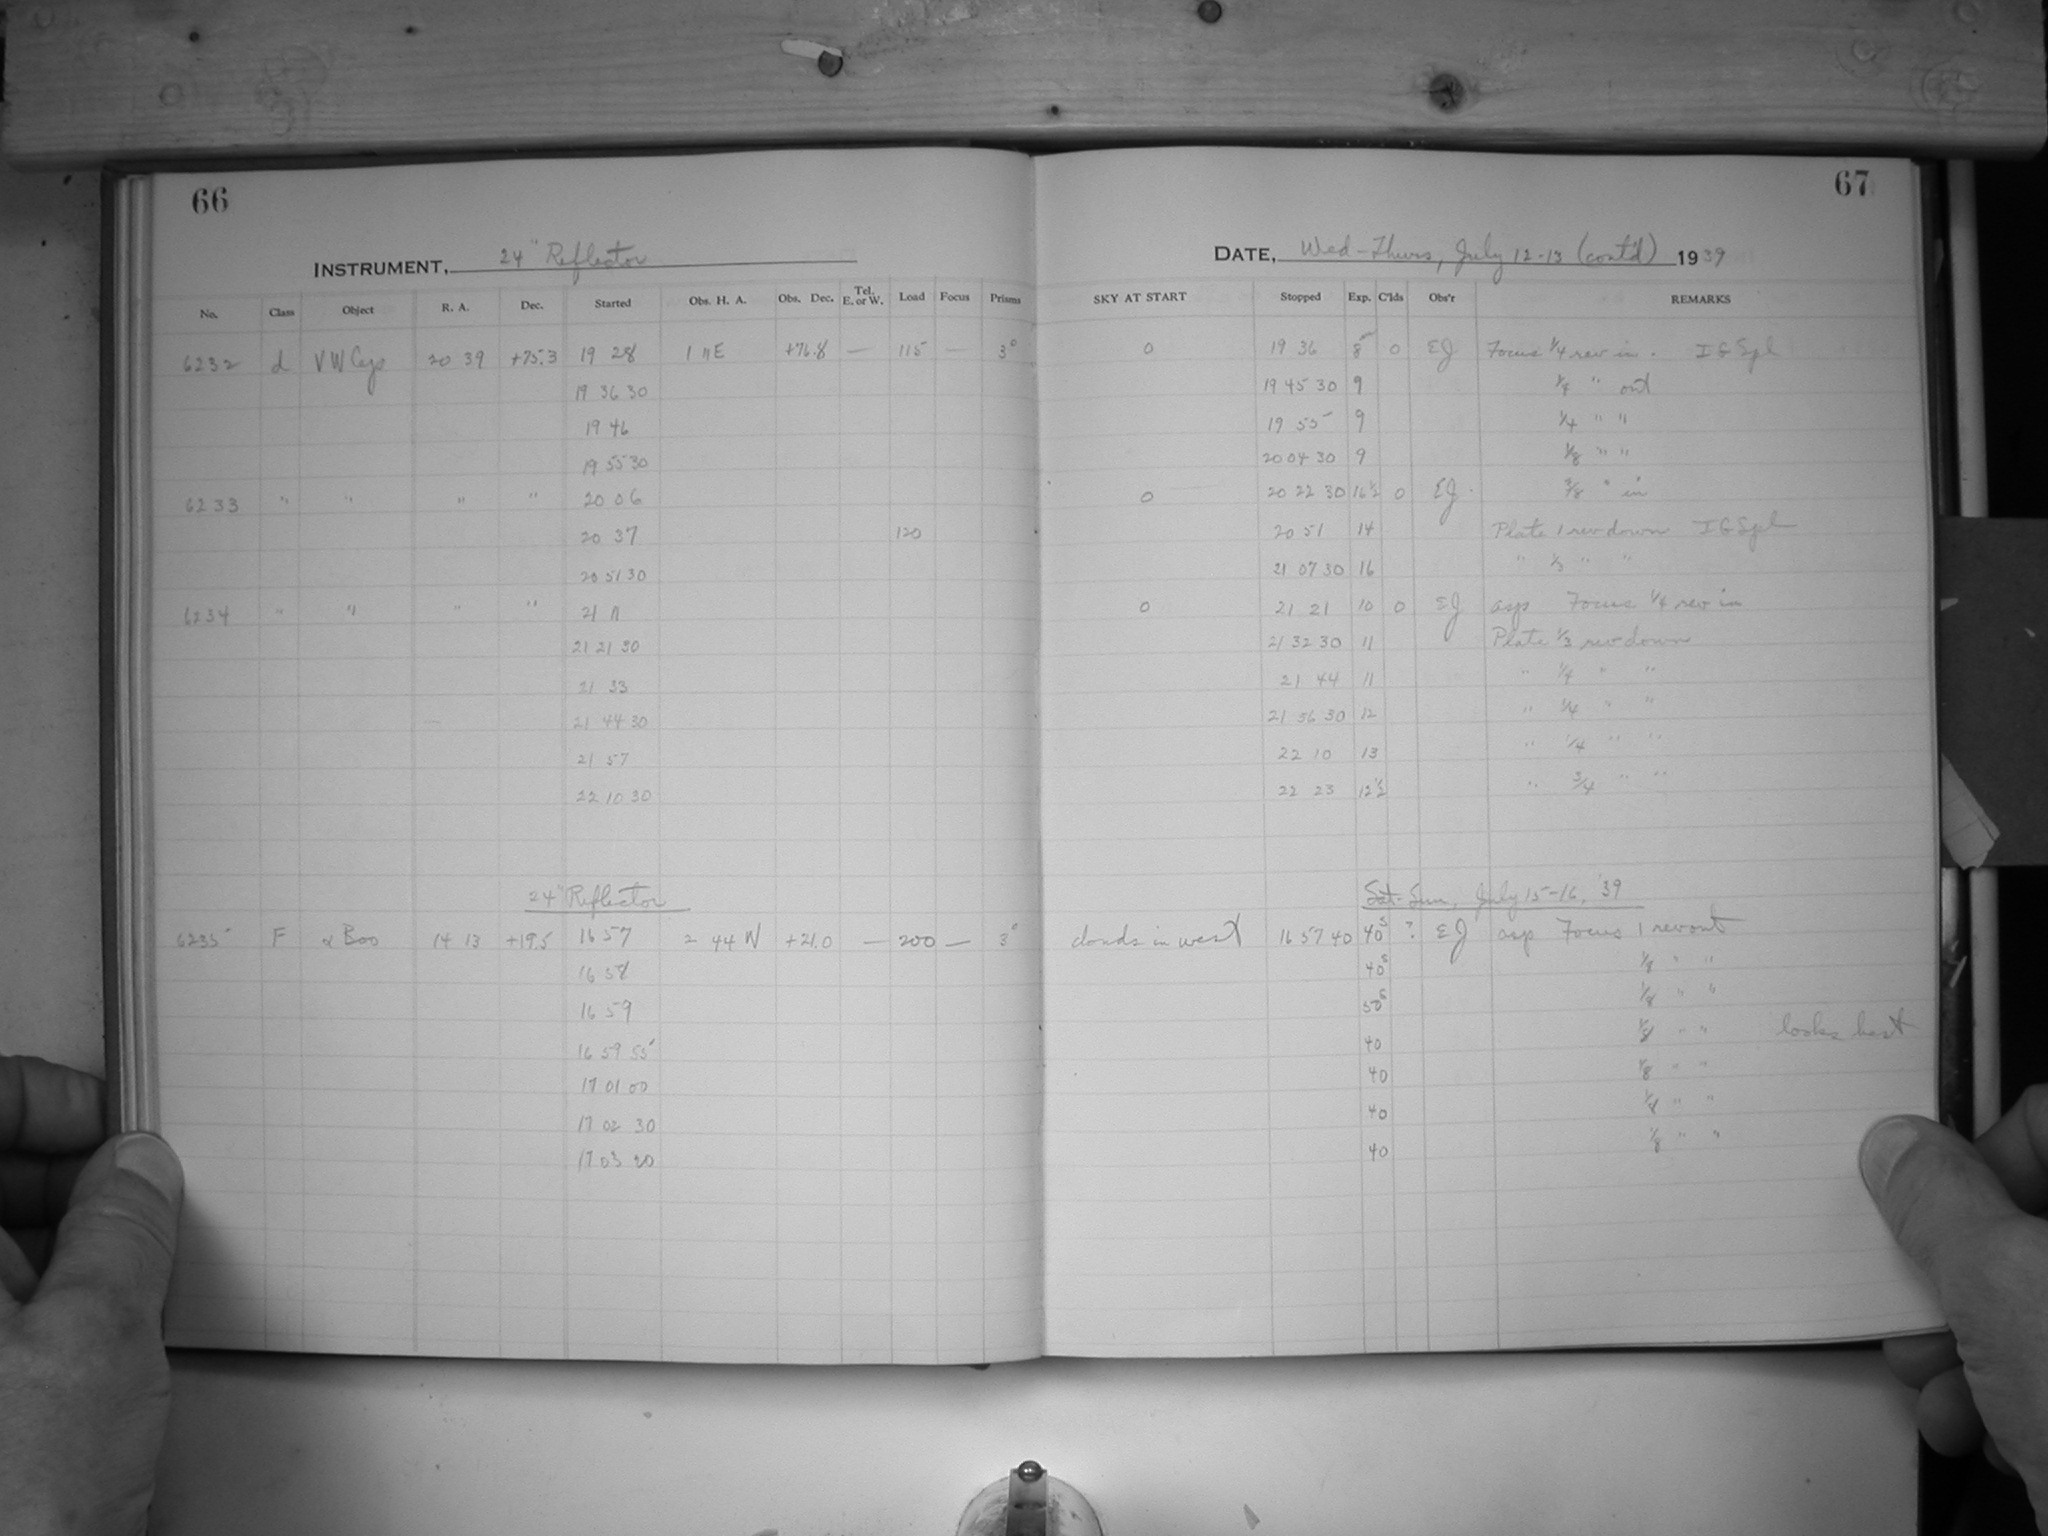 66
67
INSTRUMENT, 24" Reflector
DATE, Wed-Thurs, July 12-13 (cont'd) 1939
No. Class Object R. A. Dec. Started Obs. H. A. Obs. Dec. Tel. E. or W. Load Focus Prisms SKY AT START Stopped Exp. C'lds Obs'r REMARKS
6232 d VW Cep 20 39 +75.3 19 28 1 11 E +76.8 — 115 — 3° 0 19 36 8 0 EJ Focus 1/4 rev in. I G Spl
19 36 30 19 45 30 9 1/8 " out
19 46 19 55 9 1/4 " "
19 55 30 20 04 30 9 1/8 " "
6233 " " " " 20 06 0 20 22 30 16½ 0 EJ 3/8 " in
20 37 120 20 51 14 Plate 1 rev down I G Spl
20 51 30 21 07 30 16 " 1/3 " "
6234 " " " " 21 11 0 21 21 10 0 EJ asp Focus 1/4 rev in
21 21 30 21 32 30 11 Plate 1/3 rev down
21 33 21 44 11 " 1/4 " "
21 44 30 21 56 30 12 " 1/4 " "
21 57 22 10 13 " 1/4 " "
22 10 30 22 23 12½ " 3/4 " "
24" Reflector Sat-Sun, July 15-16, '39
6235 F α Boo 14 13 +19.5 16 57 2 44 W +21.0 — 200 — 3° clouds in west 16 57 40 40s ? EJ asp Focus 1 rev out
16 58 40s 1/8 " "
16 59 50s 1/8 " "
16 59 55 40 1/8 " " looks best
17 01 00 40 1/8 " "
17 02 30 40 1/8 " "
17 03 20 40 1/8 " "